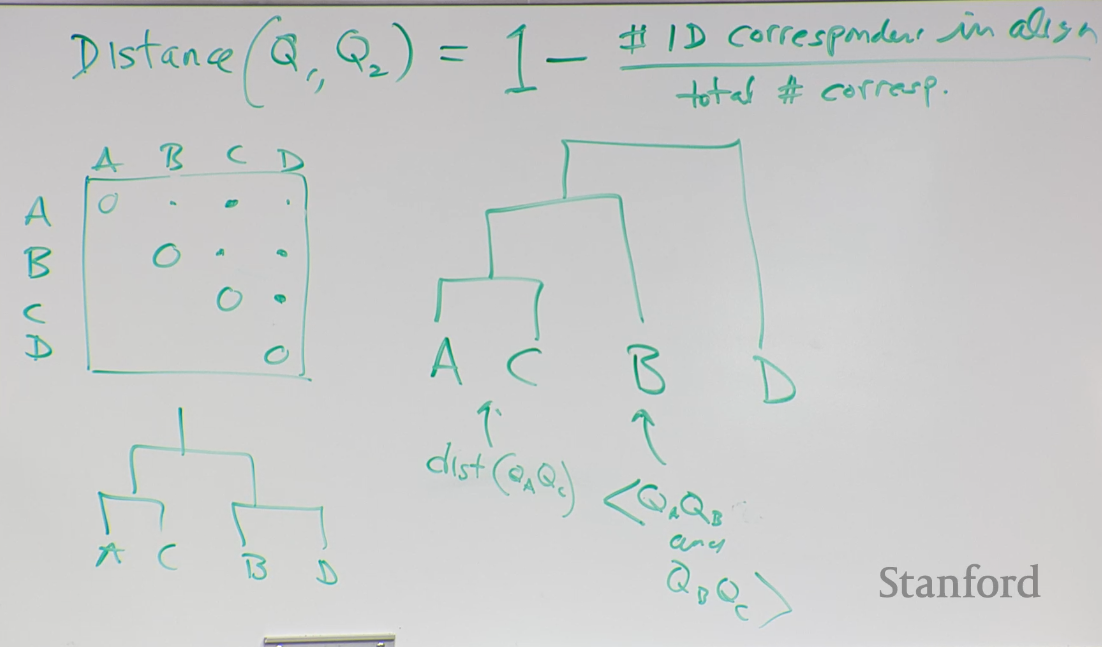 Distance(Q₁, Q₂) = 1 - # ID correspondenc in align
total # corresp.
A B C D
A O
B O
C O
D O
A C B D
dist(Q_A Q_C)
<Q_A Q_B
and
Q_B Q_C>
A C B D
Stanford